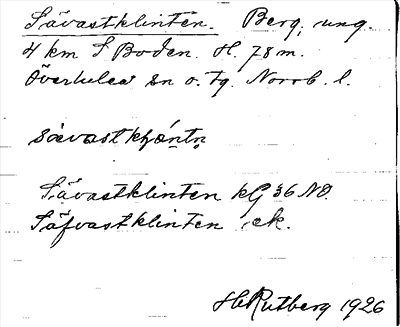 Sävastklinten. Berg, ung.
4 km S Boden. H. 78 m.
Överluleå sn o. tg. Norrb. l.
Sävastklinten kG 36 NO.
Säfvastklinten ek.
H Rutberg 1926